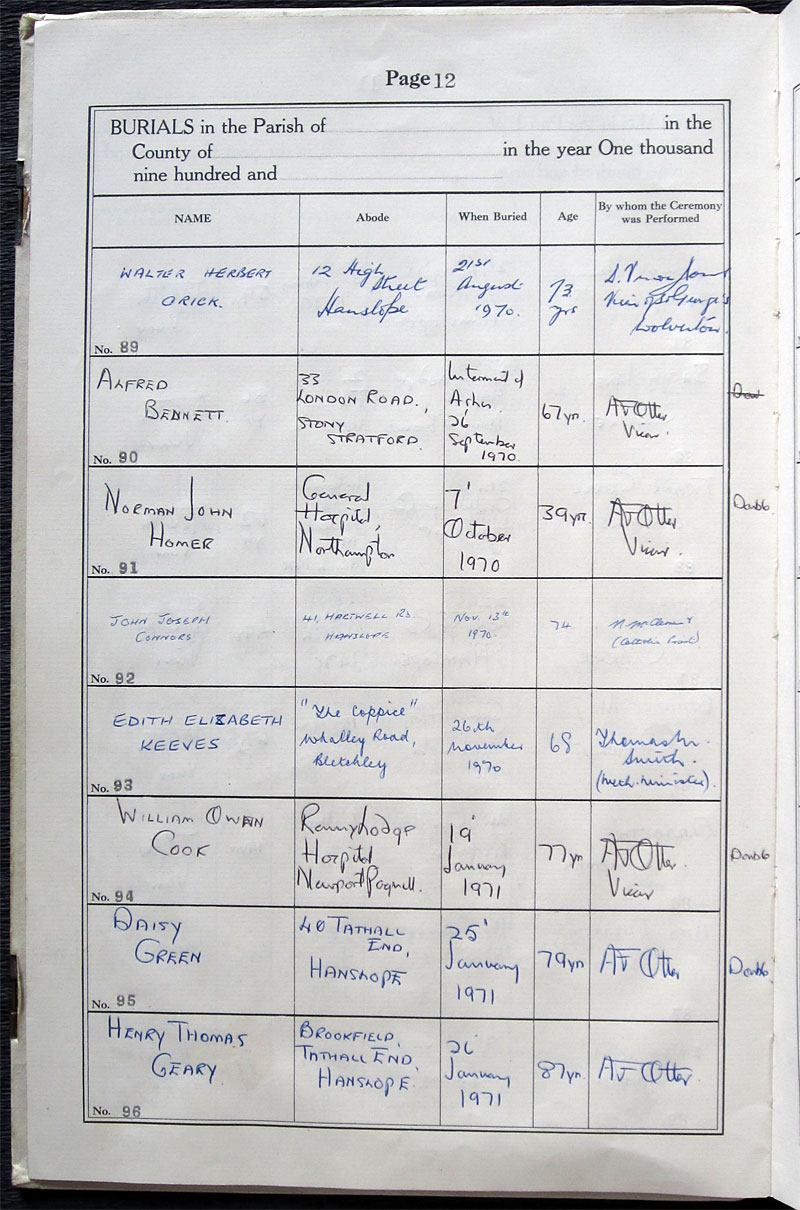 Page 12
BURIALS in the Parish of in the
County of in the year One thousand
nine hundred and
NAME
Abode
When Buried
Age
By whom the Ceremony
was Performed
WALTER HERBERT
ORICK.
12 High
Street
Hanslope
21st
August
1970.
73
yrs
Wolverton.
No. 89
ALFRED
BENNETT.
33
LONDON ROAD.,
STONY
STRATFORD.
Interment of
Ashes
26
September
1970.
67yrs.
A F Otter
Vicar.
No. 90
NORMAN JOHN
HOMER
General
Hospital,
Northampton
7'
October
1970
39yrs.
A F Otter
Vicar.
Double
No. 91
JOHN JOSEPH
CONNORS
41, HARTWELL RD.
HANSLOPE
NOV. 13th
1970.
74
(Catholic Priest)
No. 92
EDITH ELIZABETH
KEEVES
"The Coppice"
Whalley Road,
Bletchley
26th
November
1970
68
Thomas
Smith.
(Meth. Minister).
No. 93
WILLIAM OWEN
COOK
Renny Lodge
Hospital
Newport Pagnell.
19'
January
1971
77yrs
A F Otter.
Vicar
Double
No. 94
DAISY
GREEN
40 TATHALL
END,
HANSLOPE
25'
January
1971
79yrs
A F Otter
Double
No. 95
HENRY THOMAS
GEARY
BROOKFIELD,
TATHALL END,
HANSLOPE.
26'
January
1971
87yrs.
A F Otter.
No. 96